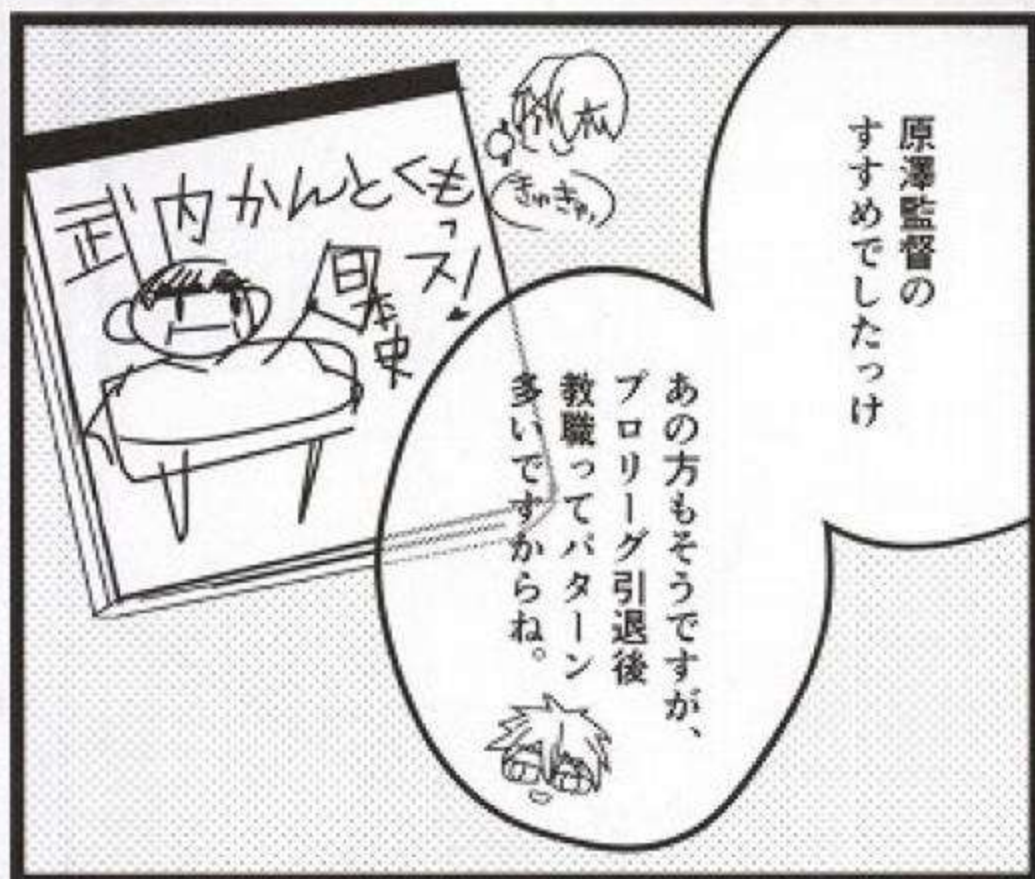 原澤監督の
すすめでしたっけ
あの方もそうですが、
プロリーグ引退後
教職ってパターン
多いですからね。
きゅきゅっ
武内かんとくもっス!
日本史